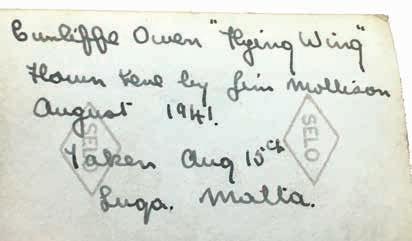 Cunliffe Owen "Flying Wing"
Flown here by Jim Mollison
August 1941.
Taken Aug 15th
Luqa. Malta.
SELO
SELO